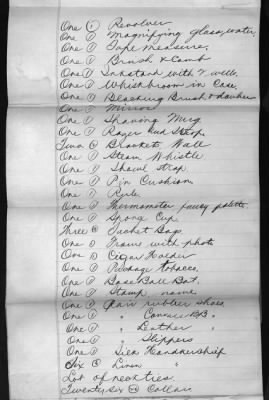 One (1) Revolver
One (1) Magnifying glass, water
One (1) Tape measure
One (1) Brush & Comb
One (1) Inkstand with 2 wells
One (1) Whiskbroom in Case
One (1) Blacking Brush & dauber
One (1) Mirror
One (1) Shaving Mug
One (1) Razor and Strop
Two (2) Brackets Wall
One (1) Steam Whistle
One (1) Shawl Strap
One (1) Pin Cushion
One (1) Rule
One (1) Thermometer fancy palette
One (1) Sponge Cup
Three (3) Tucket Bags
One (1) Frame with photo
One (1) Cigar Holder
One (1) Package tobacco
One (1) Base Ball Bat
One (1) Stamp name
One (1) Pair rubber shoes
One (1) " Canvas BB "
One (1) " Leather "
One (1) " Slippers
One (1) " Silk Handkerchief
Six (6) Linen "
Lot of neckties
Twenty six (26) Collars